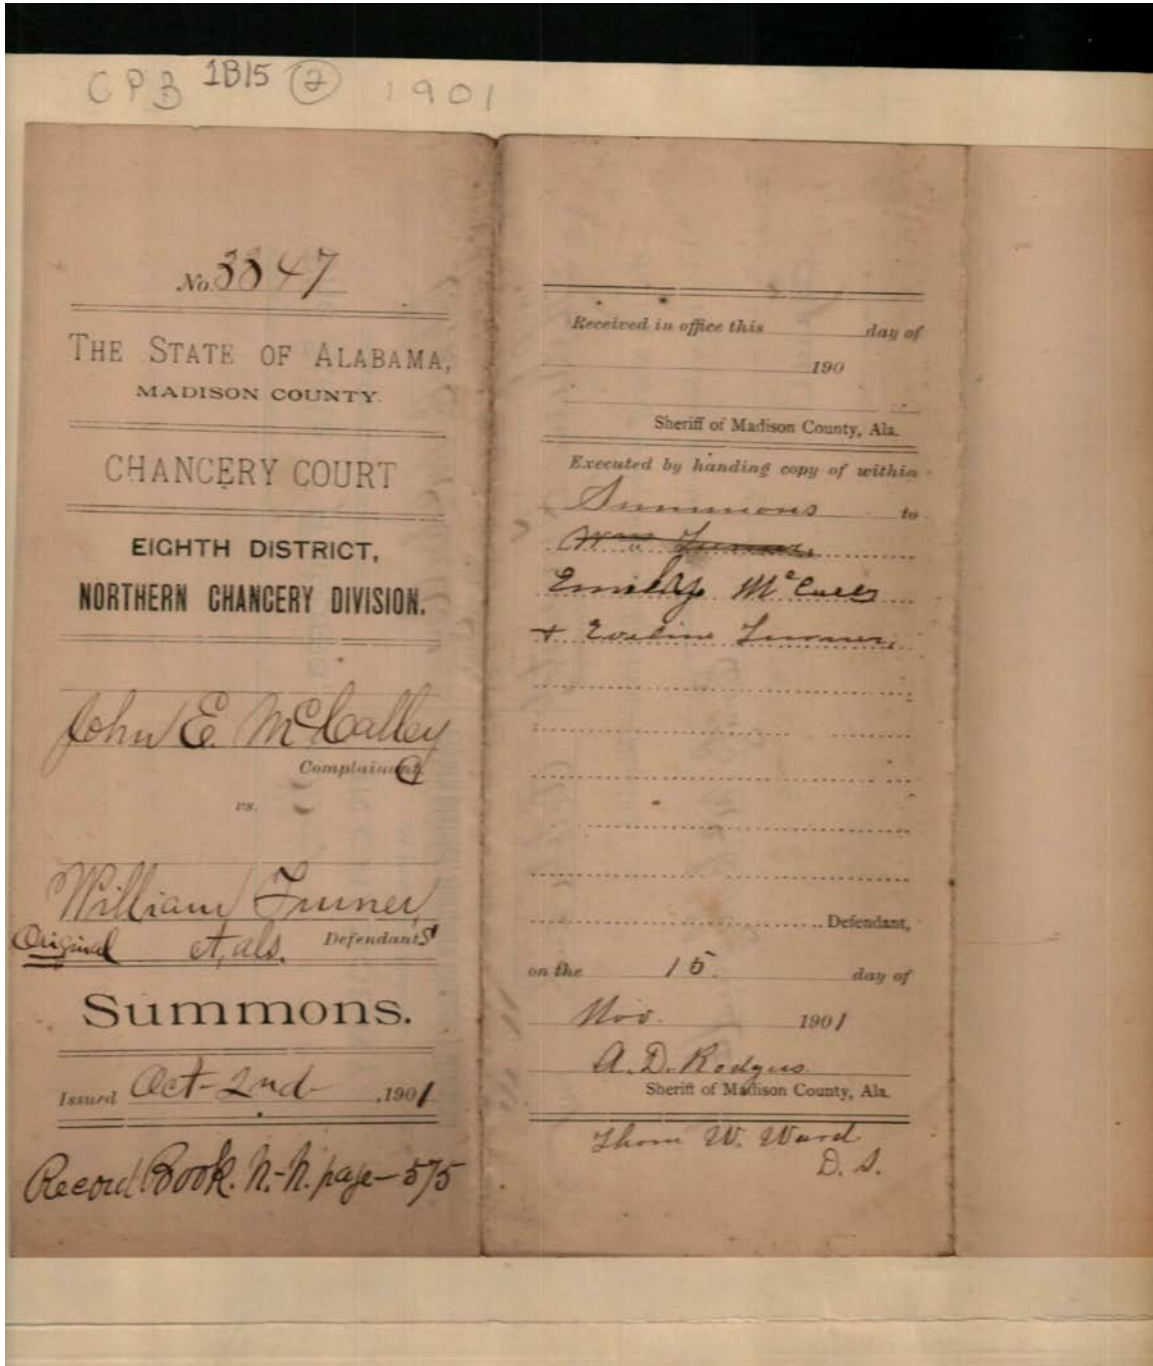 CPB 1B15 (2) 1901
No. 3347
THE STATE OF ALABAMA,
MADISON COUNTY.
CHANCERY COURT
EIGHTH DISTRICT,
NORTHERN CHANCERY DIVISION.
John E. McCalley
Complainant
vs.
William Turner,
Original et, als. Defendants
Summons.
Issued Oct-2nd ,1901
Record Book. N.-N. page-575
Received in office this day of
190
Sheriff of Madison County, Ala.
Executed by handing copy of within
Summons to
Wm Turner,
Emily
& Eveline Turner,
Defendant,
on the 15. day of
Nov. 1901
A. D. Rodgers
Sheriff of Madison County, Ala.
Thom W. Ward
D. S.